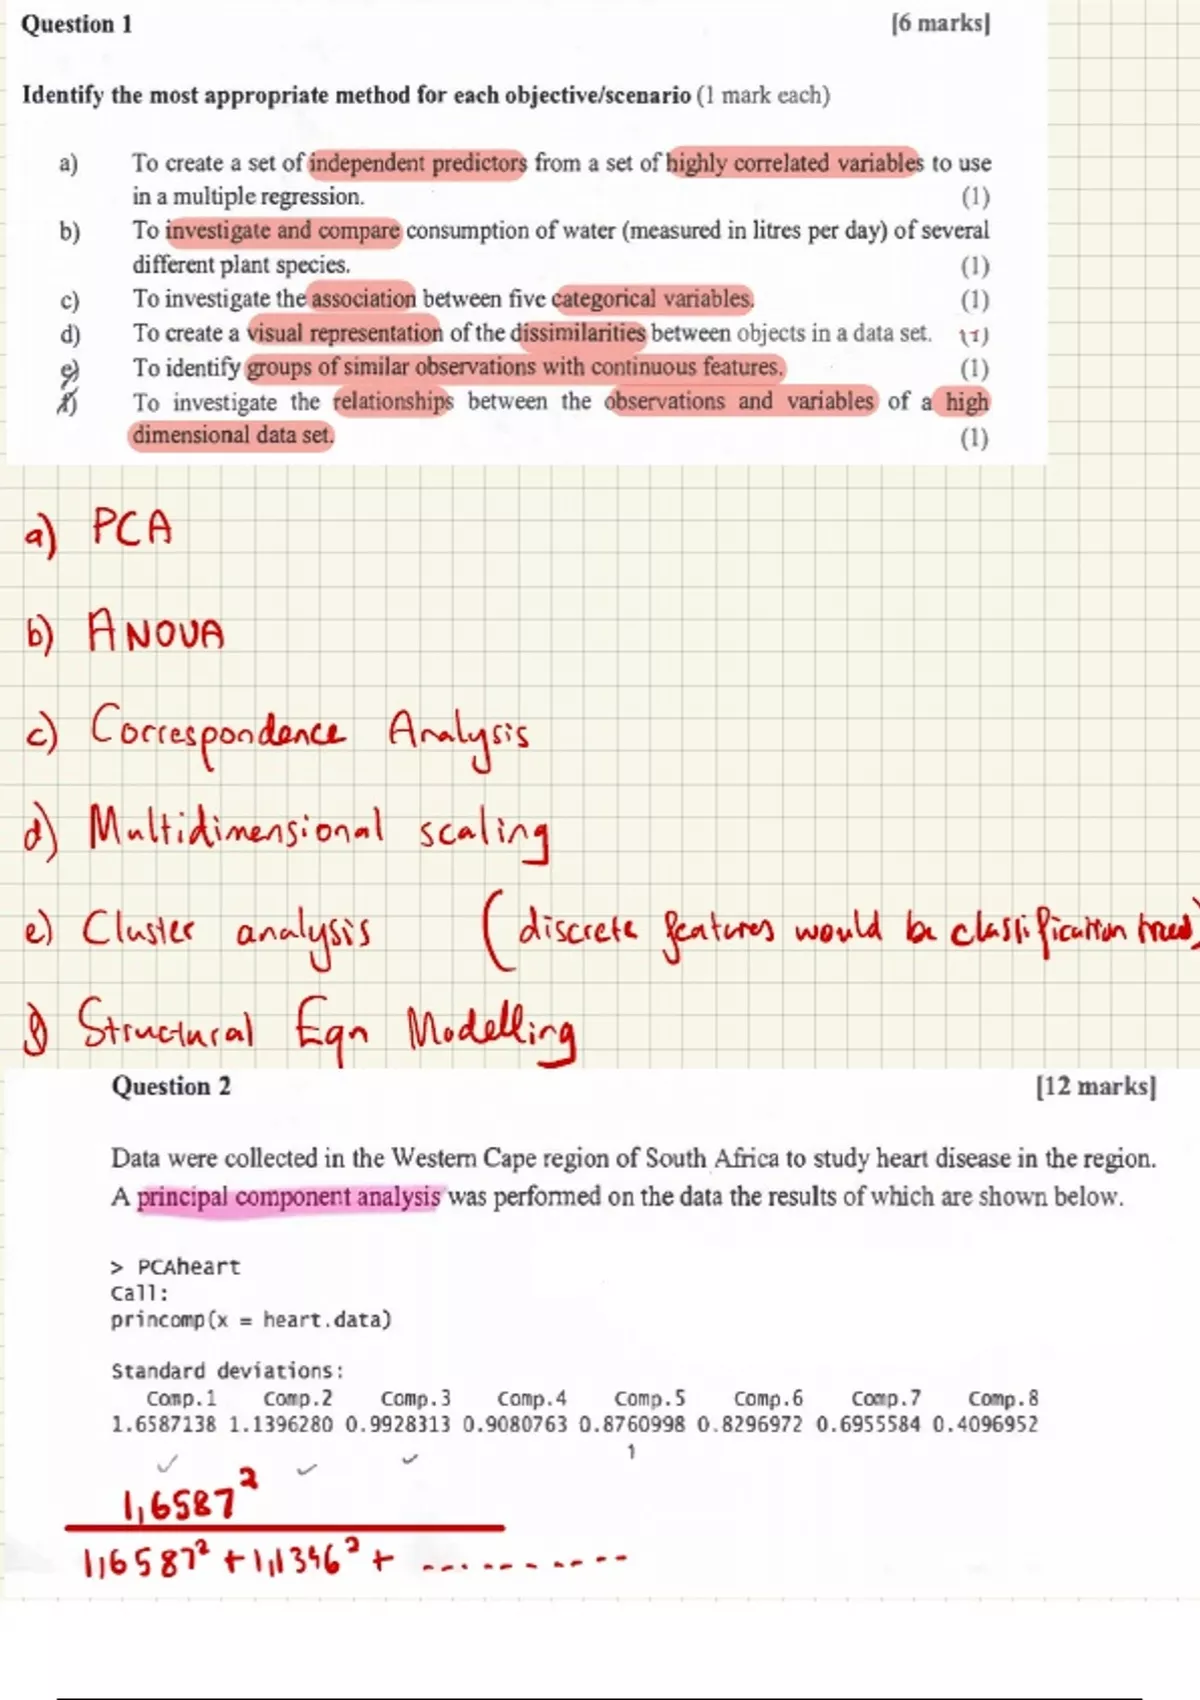 Question 1 [6 marks]
Identify the most appropriate method for each objective/scenario (1 mark each)
a) To create a set of independent predictors from a set of highly correlated variables to use
in a multiple regression. (1)
b) To investigate and compare consumption of water (measured in litres per day) of several
different plant species. (1)
c) To investigate the association between five categorical variables. (1)
d) To create a visual representation of the dissimilarities between objects in a data set. (1)
e) To identify groups of similar observations with continuous features. (1)
f) To investigate the relationships between the observations and variables of a high
dimensional data set. (1)
a) PCA
b) ANOVA
c) Correspondence Analysis
d) Multidimensional scaling
e) Cluster analysis (discrete features would be classification trees)
f) Structural Eqn Modelling
Question 2 [12 marks]
Data were collected in the Western Cape region of South Africa to study heart disease in the region.
A principal component analysis was performed on the data the results of which are shown below.
> PCAheart
Call:
princomp(x = heart.data)
Standard deviations:
Comp.1 Comp.2 Comp.3 Comp.4 Comp.5 Comp.6 Comp.7 Comp.8
1.6587138 1.1396280 0.9928313 0.9080763 0.8760998 0.8296972 0.6955584 0.4096952
1,6587²
1,6587² + 1,1396² + ..........